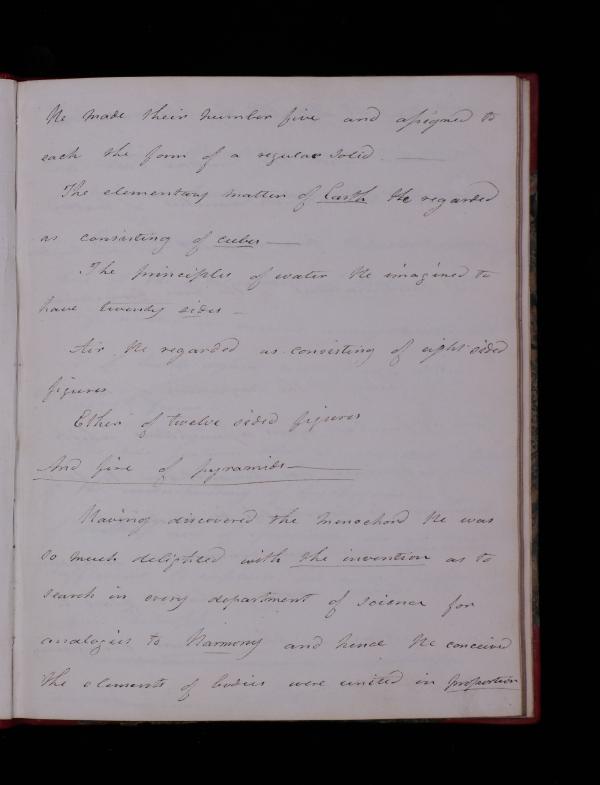 He made their number five and assigned to
each the form of a regular solid. —
The elementary matter of Earth He regarded
as consisting of cubes —
The principles of water He imagined to
have twenty sides —
Air He regarded as consisting of eight sided
figures.
Ether of twelve sided figures
And fire of pyramids —
Having discovered the Monochord He was
so much delighted with the invention as to
search in every department of science for
analogies to Harmony and hence He conceived
the elements of bodies were united in proportion